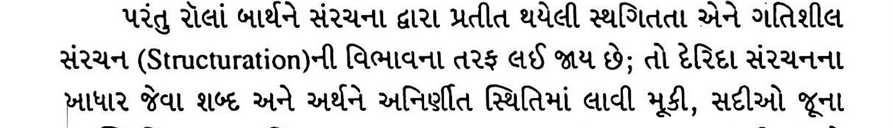 પરંતુ રૉલાં બાર્થને સંરચના દ્વારા પ્રતીત થયેલી સ્થગિતતા એને ગતિશીલ
સંરચન (Structuration)ની વિભાવના તરફ લઈ જાય છે; તો દેરિદા સંરચનના
આધાર જેવા શબ્દ અને અર્થને અનિર્ણીત સ્થિતિમાં લાવી મૂકી, સદીઓ જૂના